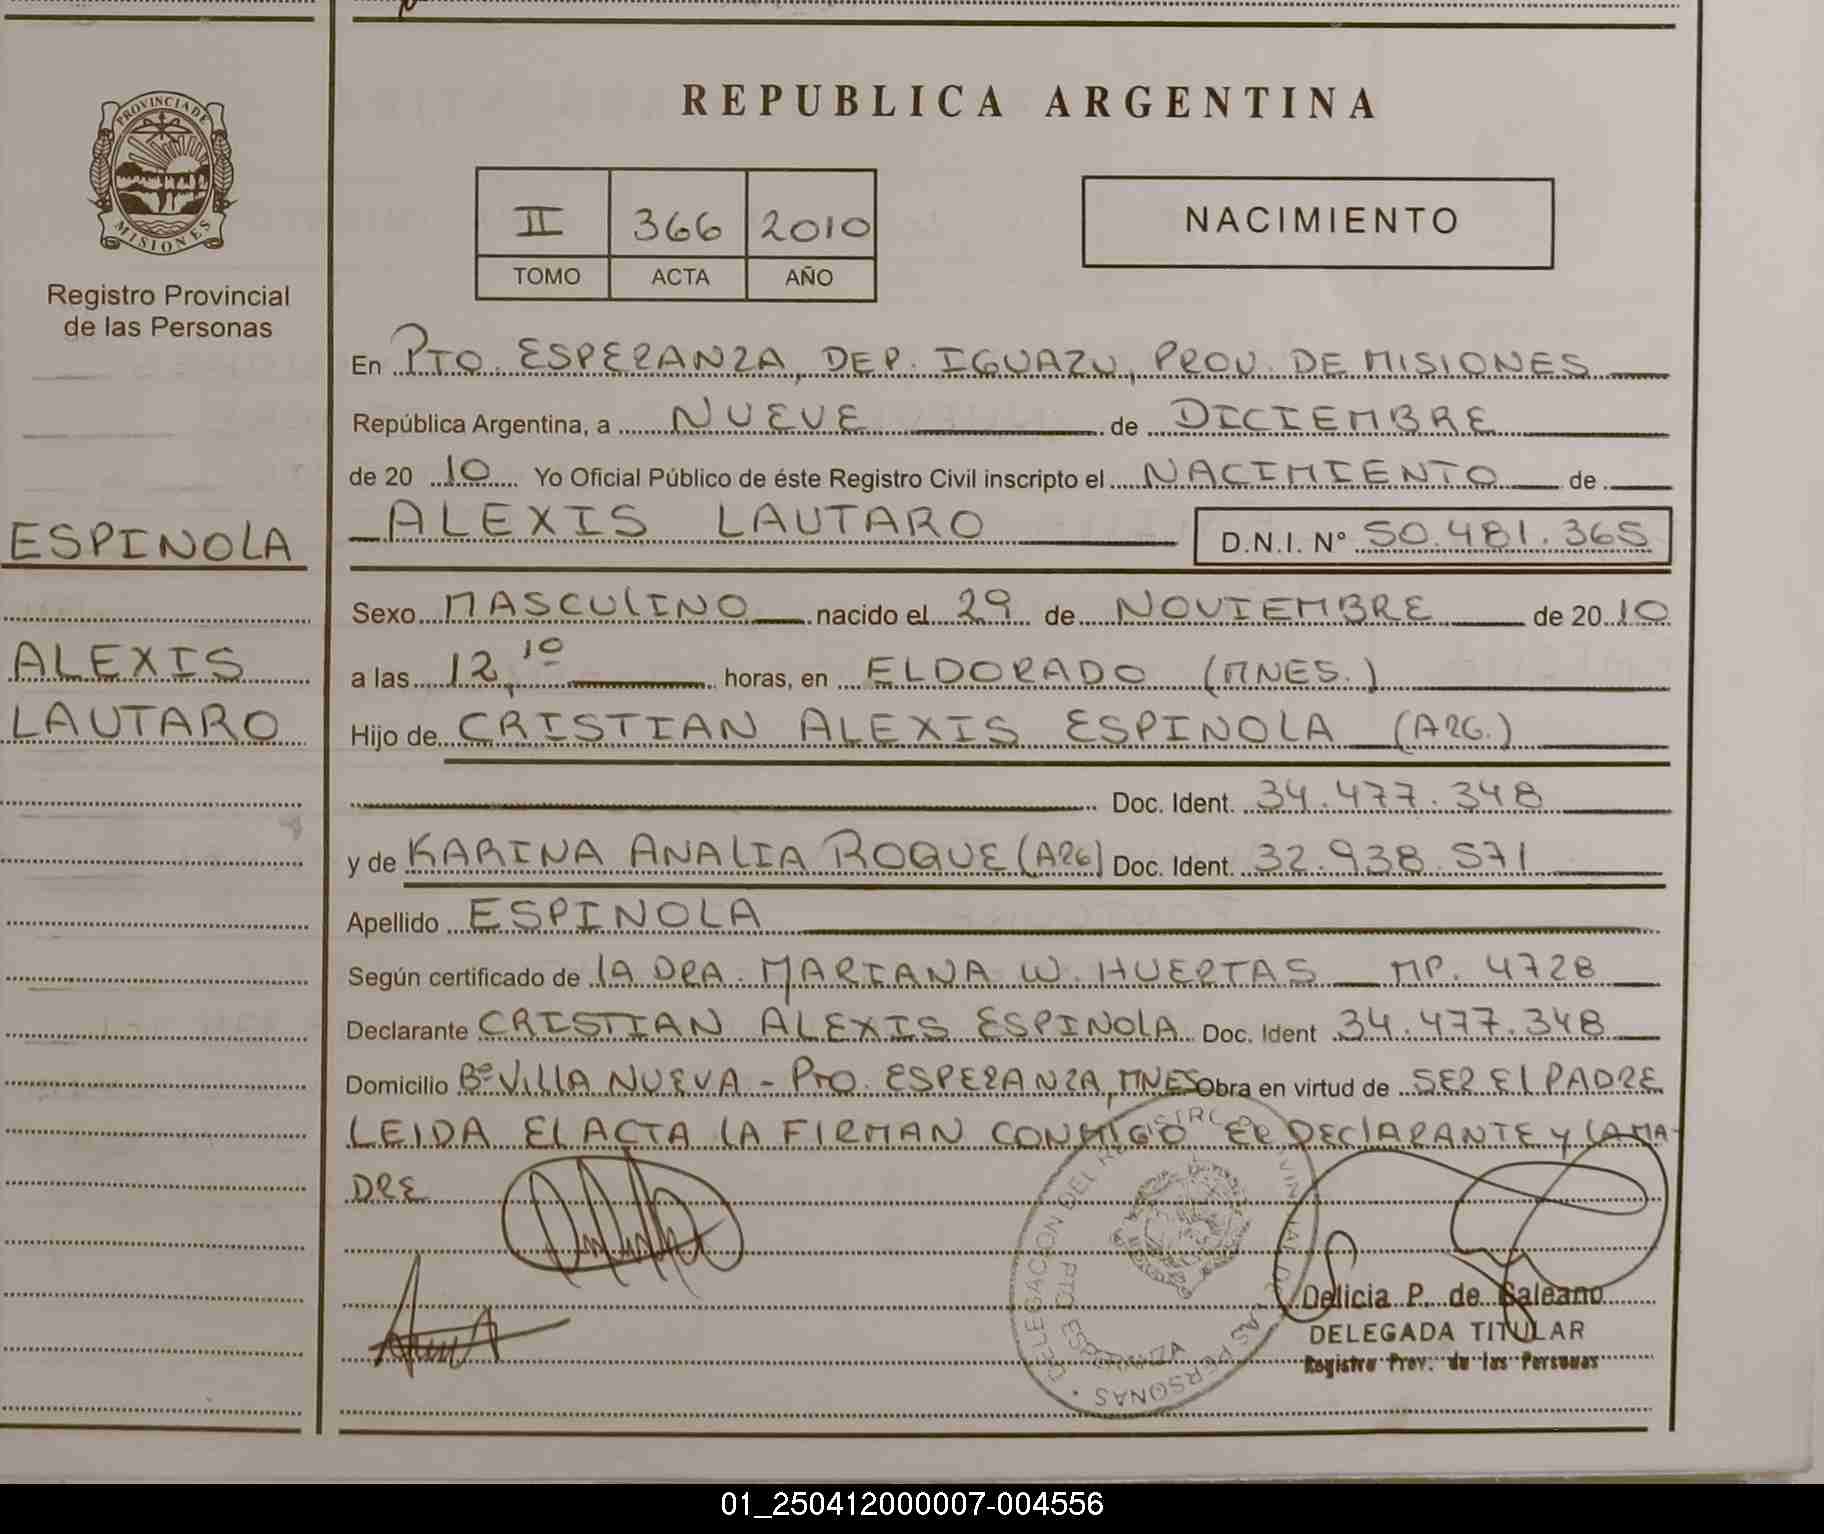 PROVINCIA DE
MISIONES
Registro Provincial
de las Personas
ESPINOLA
ALEXIS
LAUTARO
REPUBLICA ARGENTINA
II 366 2010
TOMO ACTA AÑO
NACIMIENTO
En PTO. ESPERANZA, DEP. IGUAZU, PROV. DE MISIONES
República Argentina, a NUEVE de DICIEMBRE
de 20 10 Yo Oficial Público de éste Registro Civil inscripto el NACIMIENTO de
ALEXIS LAUTARO D.N.I. Nº 50.481.365
Sexo MASCULINO nacido el 29 de NOVIEMBRE de 20 10
a las 12,10 horas, en ELDORADO (MNES.)
Hijo de CRISTIAN ALEXIS ESPINOLA (ARG.)
Doc. Ident. 34.477.348
y de KARINA ANALIA ROQUE (ARG) Doc. Ident. 32.938.571
Apellido ESPINOLA
Según certificado de LA DRA. MARIANA W. HUERTAS MP. 4728
Declarante CRISTIAN ALEXIS ESPINOLA Doc. Ident 34.477.348
Domicilio Bº VILLA NUEVA - PTO. ESPERANZA, MNES Obra en virtud de SER EL PADRE
LEIDA EL ACTA LA FIRMAN CONMIGO EL DECLARANTE Y LA MA-
DRE
DELEGACION DEL REGISTRO PROVINCIAL DE LAS PERSONAS
PTO ESPERANZA
Delicia P. de Galeano
DELEGADA TITULAR
Registro Prov. de las Personas
01_250412000007-004556